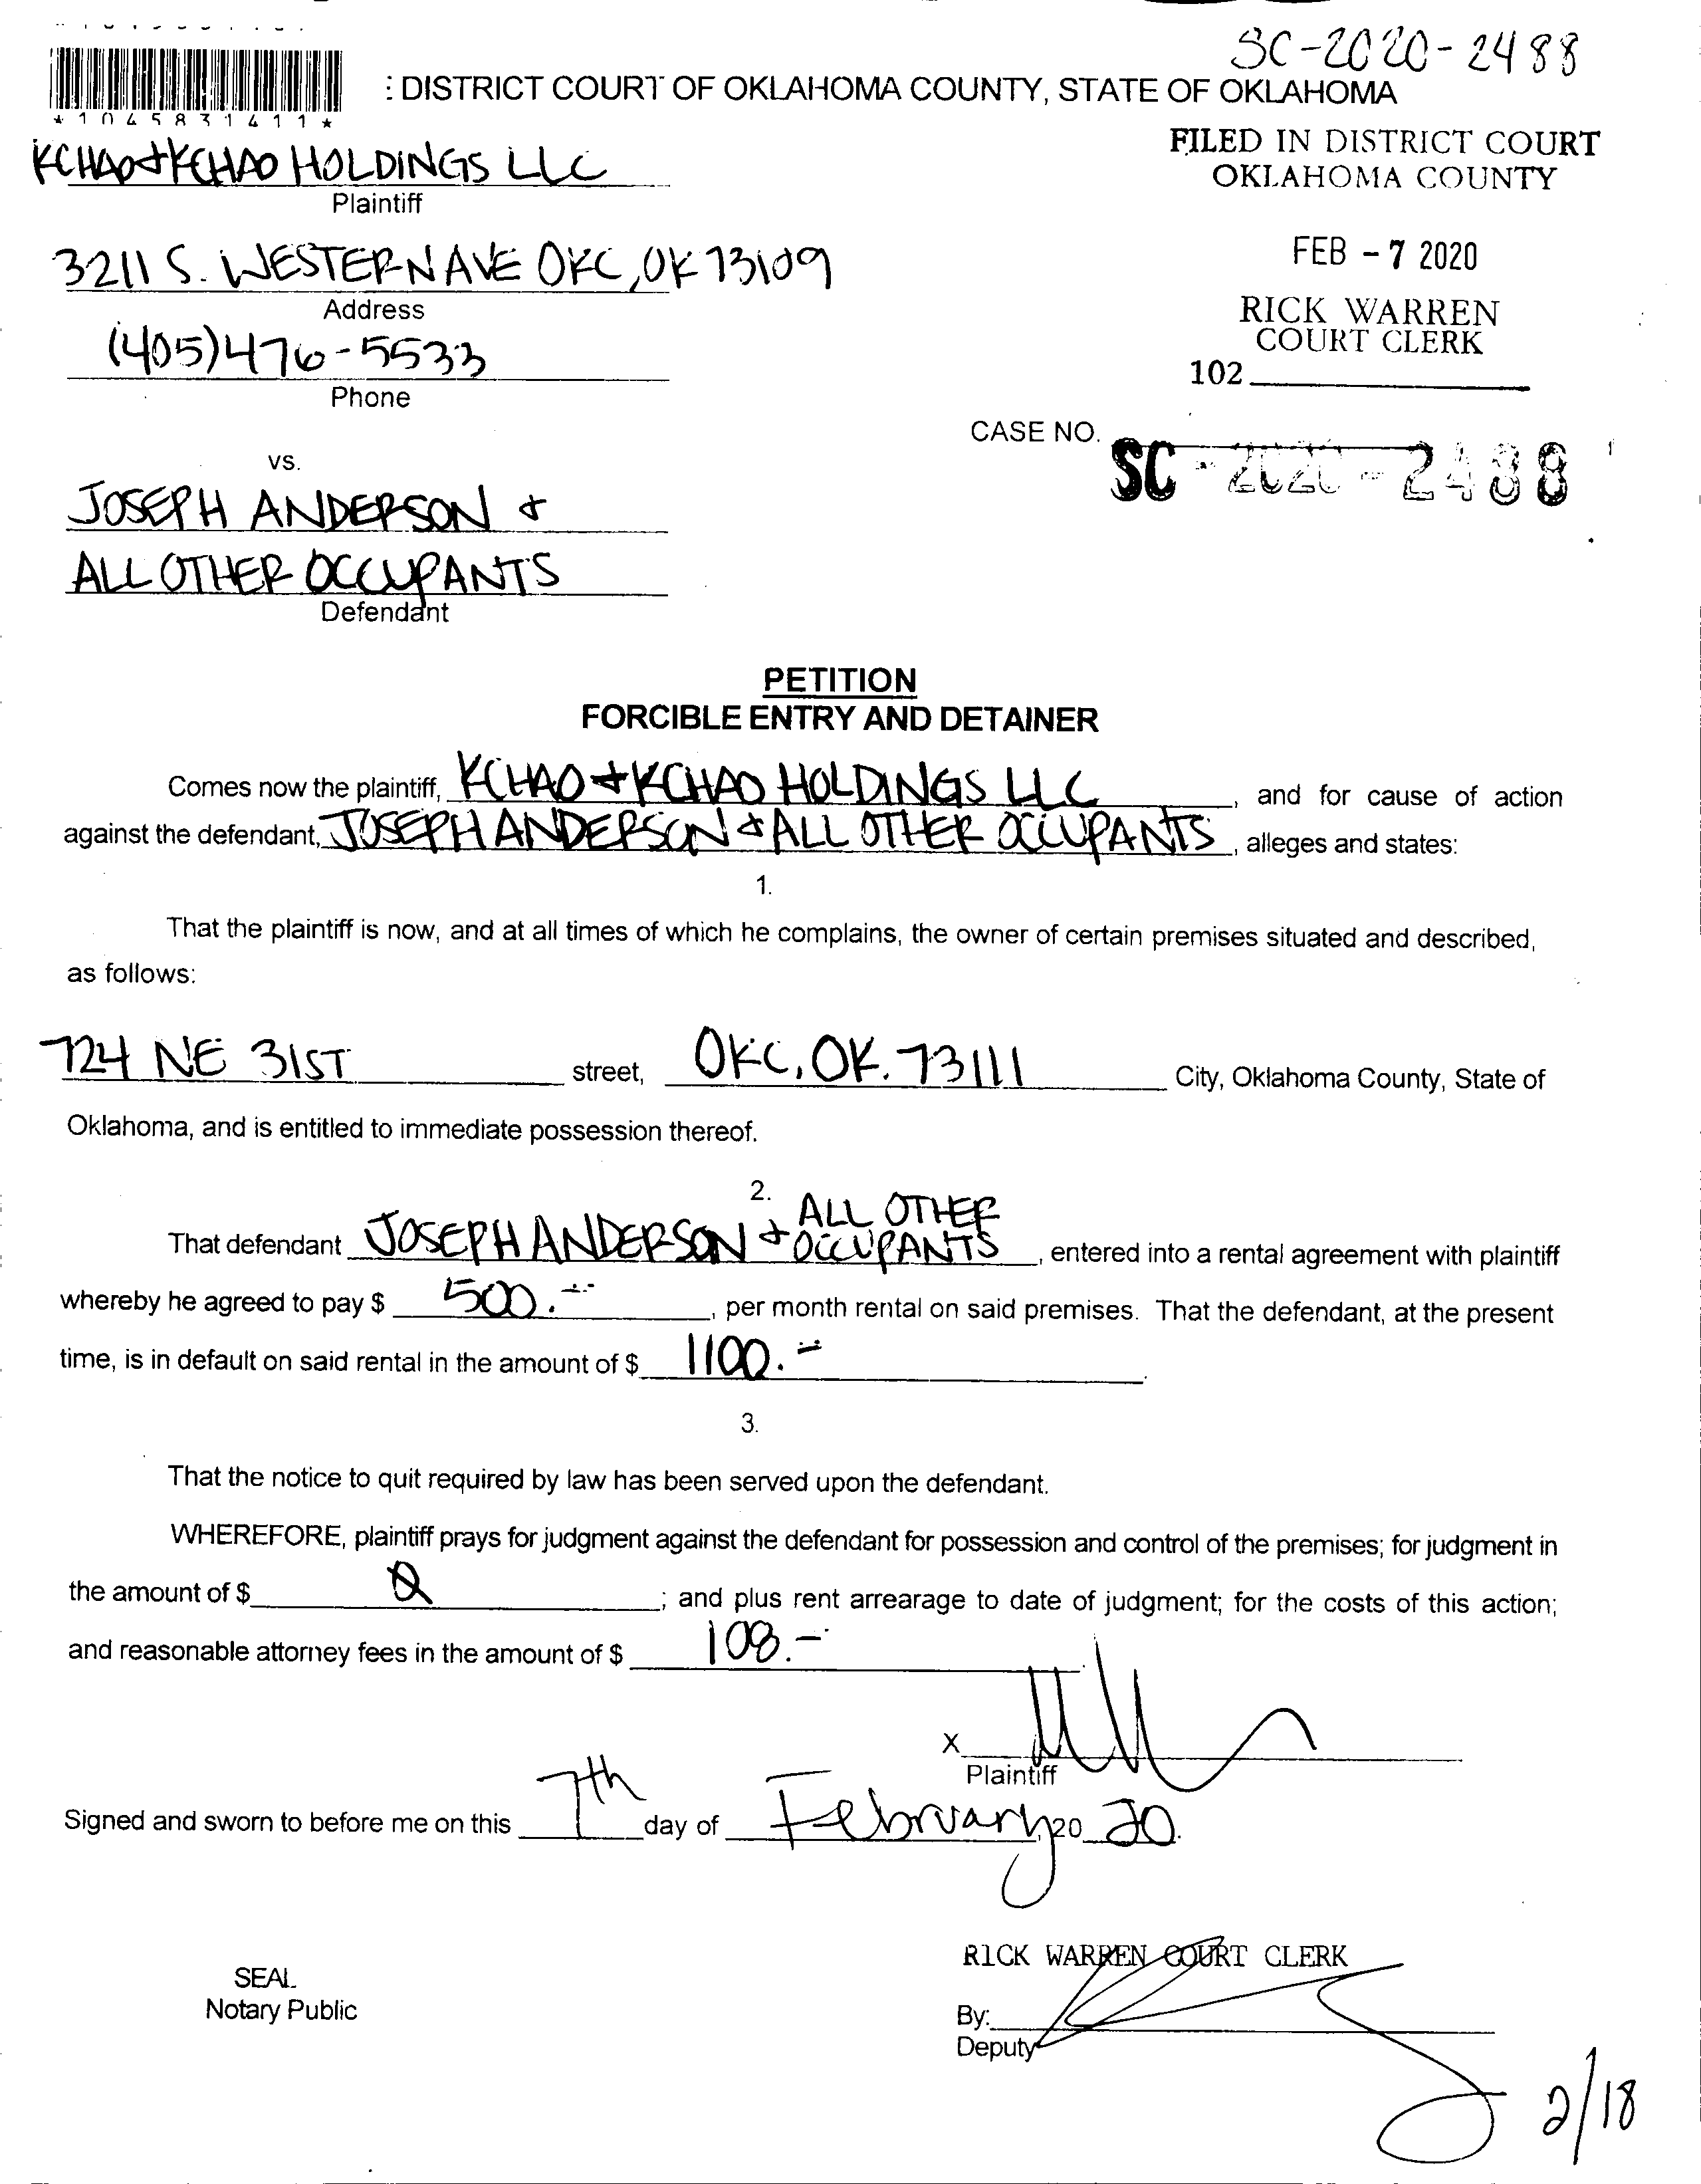 SC-2020-2488
: DISTRICT COURT OF OKLAHOMA COUNTY, STATE OF OKLAHOMA
*1045831411*
KCHAO & KCHAO HOLDINGS LLC
Plaintiff
FILED IN DISTRICT COURT
OKLAHOMA COUNTY
3211 S. WESTERN AVE OKC, OK 73109
Address
FEB - 7 2020
(405)476-5533
Phone
RICK WARREN
COURT CLERK
102
CASE NO. SC - 2020 - 2488
vs.
JOSEPH ANDERSON &
ALL OTHER OCCUPANTS
Defendant
PETITION
FORCIBLE ENTRY AND DETAINER
Comes now the plaintiff, KCHAO & KCHAO HOLDINGS LLC, and for cause of action
against the defendant, JOSEPH ANDERSON & ALL OTHER OCCUPANTS, alleges and states:
1.
That the plaintiff is now, and at all times of which he complains, the owner of certain premises situated and described,
as follows:
724 NE 31ST street, OKC, OK. 73111 City, Oklahoma County, State of
Oklahoma, and is entitled to immediate possession thereof.
2.
That defendant JOSEPH ANDERSON & ALL OTHER OCCUPANTS, entered into a rental agreement with plaintiff
whereby he agreed to pay $ 500.-, per month rental on said premises. That the defendant, at the present
time, is in default on said rental in the amount of $ 1100.-.
3.
That the notice to quit required by law has been served upon the defendant.
WHEREFORE, plaintiff prays for judgment against the defendant for possession and control of the premises; for judgment in
the amount of $ 0; and plus rent arrearage to date of judgment; for the costs of this action;
and reasonable attorney fees in the amount of $ 108.-.
X
Plaintiff
Signed and sworn to before me on this 7th day of February, 20 20.
SEAL
Notary Public
RICK WARREN COURT CLERK
By:
Deputy
2/18